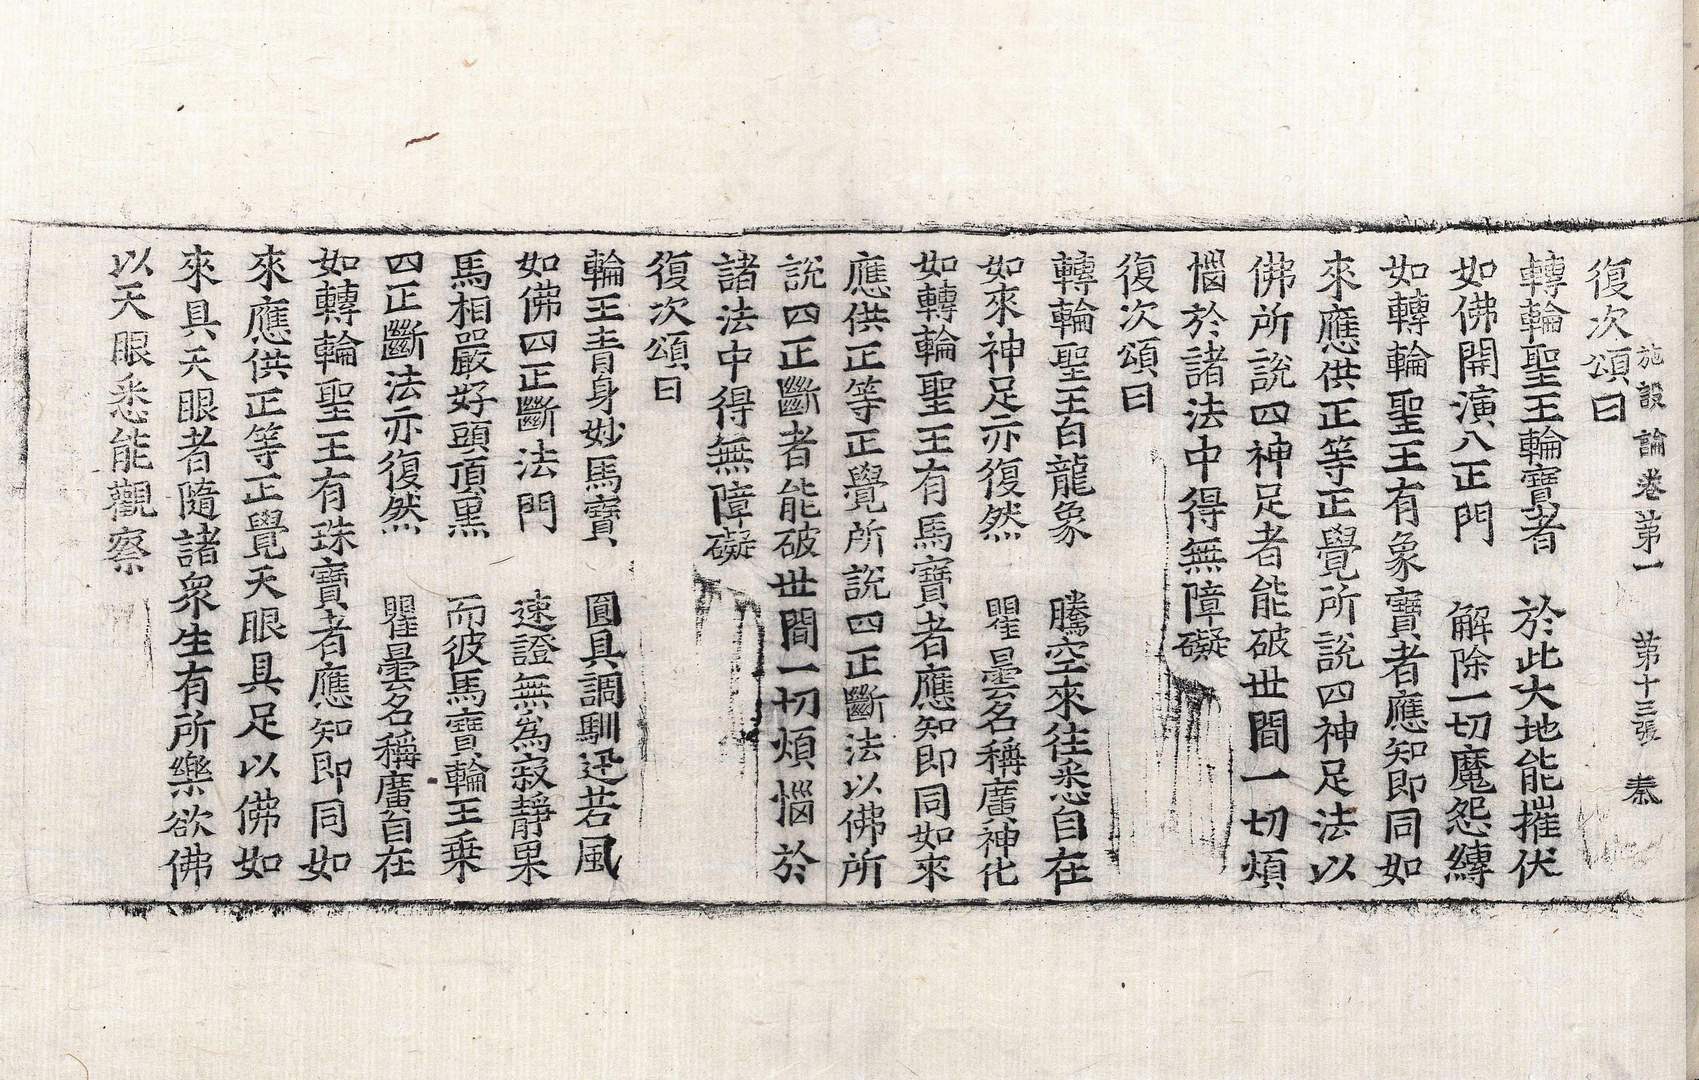 施設論卷第一　第十三張　㤗
復次頌曰
轉輪聖王輪寶者　於此大地能摧伏
如佛開演八正門　解除一切魔怨縛
如轉輪聖王有象寶者應知即同如
來應供正等正覺所說四神足法以
佛所說四神足者能破世間一切煩
惱於諸法中得無障礙
復次頌曰
轉輪聖王白龍象　騰空來往悉自在
如來神足亦復然　瞿曇名稱廣神化
如轉輪聖王有馬寶者應知即同如來
應供正等正覺所說四正斷法以佛所
說四正斷者能破世間一切煩惱於
諸法中得無障礙
復次頌曰
輪王青身妙馬寶　圓具調馴迅若風
如佛四正斷法門　速證無為寂靜果
馬相嚴好頭頂黑　而彼馬寶輪王乗
四正斷法亦復然　瞿曇名稱廣自在
如轉輪聖王有珠寶者應知即同如
來應供正等正覺天眼具足以佛如
來具天眼者隨諸衆生有所樂欲佛
以天眼悉能觀察